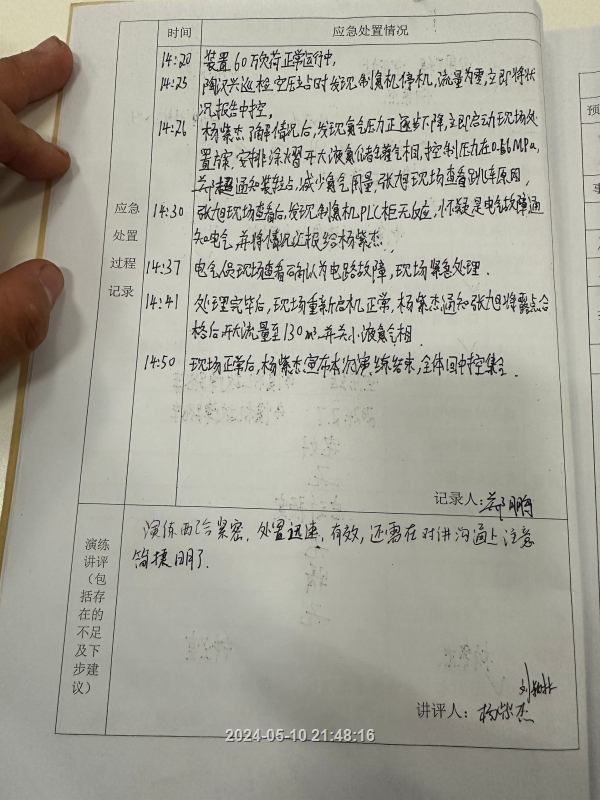 时间 应急处置情况
14:20 装置60万负荷正常运行中,
14:25 陶汉兴巡检空压站时发现制氮机停机,流量为零,立即将状
况报告中控,
14:26 杨紫杰了解情况后,发现氮气压力正逐步下降,立即启动现场处
置方案,安排涂水習开大液氮储罐气相,控制压力在0.66MPa,
超通知装转占,减少氮气用量,张旭现场查看跳车原因,
应急处置过程记录
14:30 张旭现场查看后,发现制氮机PLC柜无反应,怀疑是电气故障通
知电气,并将情况汇报给杨紫杰.
14:37 电气人员现场查看确认为电路故障,现场紧急处理.
14:41 处理完毕后,现场重新启机正常,杨紫杰通知张旭将露点合
格后开大流量至130m³.并关小液氮气相.
14:50 现场正常后,杨紫杰宣布本次演练结束,全体回中控集合
记录人:
演练讲评(包括存在的不足及下步建议)
演练配合紧密,处置迅速,有效,还需在对讲沟通上注意
简捷明了.
讲评人: 杨紫杰
2024-05-10 21:48:16
预
事